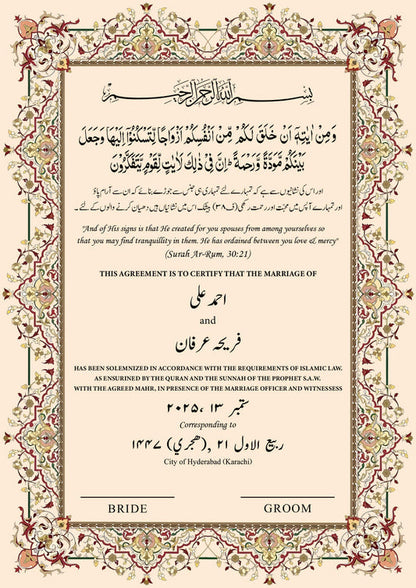 بسم الله الرحمن الرحيم
وَمِنْ اٰيٰتِهٖٓ اَنْ خَلَقَ لَكُمْ مِّنْ اَنْفُسِكُمْ اَزْوَاجًا لِّتَسْكُنُوْٓا اِلَيْهَا وَجَعَلَ
بَيْنَكُمْ مَّوَدَّةً وَّرَحْمَةً ؕ اِنَّ فِيْ ذٰلِكَ لَاٰيٰتٍ لِّقَوْمٍ يَّتَفَكَّرُوْنَ
اور اس کی نشانیوں سے ہے کہ تمہارے لئے تمہاری ہی جنس سے جوڑے بنائے کہ ان سے آرام پاؤ
اور تمہارے آپس میں محبت اور رحمت رکھی (ف۳۸) بیشک اس میں نشانیاں ہیں دھیان کرنے والوں کے لئے ۔
"And of His signs is that He created for you spouses from among yourselves so
that you may find tranquility in them. He has ordained between you love & mercy"
(Surah Ar-Rum, 30:21)
THIS AGREEMENT IS TO CERTIFY THAT THE MARRIAGE OF
احمد علی
and
فریحہ عرفان
HAS BEEN SOLEMNIZED IN ACCORDANCE WITH THE REQUIREMENTS OF ISLAMIC LAW.
AS ENSURINED BY THE QURAN AND THE SUNNAH OF THE PROPHET S.A.W.
WITH THE AGREED MAHR, IN PRESENCE OF THE MARRIAGE OFFICER AND WITNESSESS
ستمبر ۱۳ ،۲۰۲۵
Corresponding to
ربیع الاول ۲۱ ,(هجري) ۱۴۴۷
City of Hyderabad (Karachi)
BRIDE
GROOM